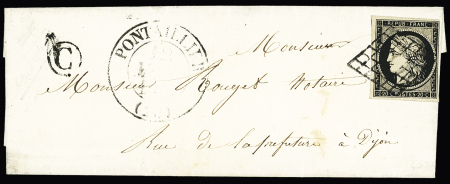 C
PONTAILLIER
REPUB. FRANC.
20 C POSTES 20 C
Monsieur
Monsieur Rouget Notaire
Rue de la prefeture à Dijon